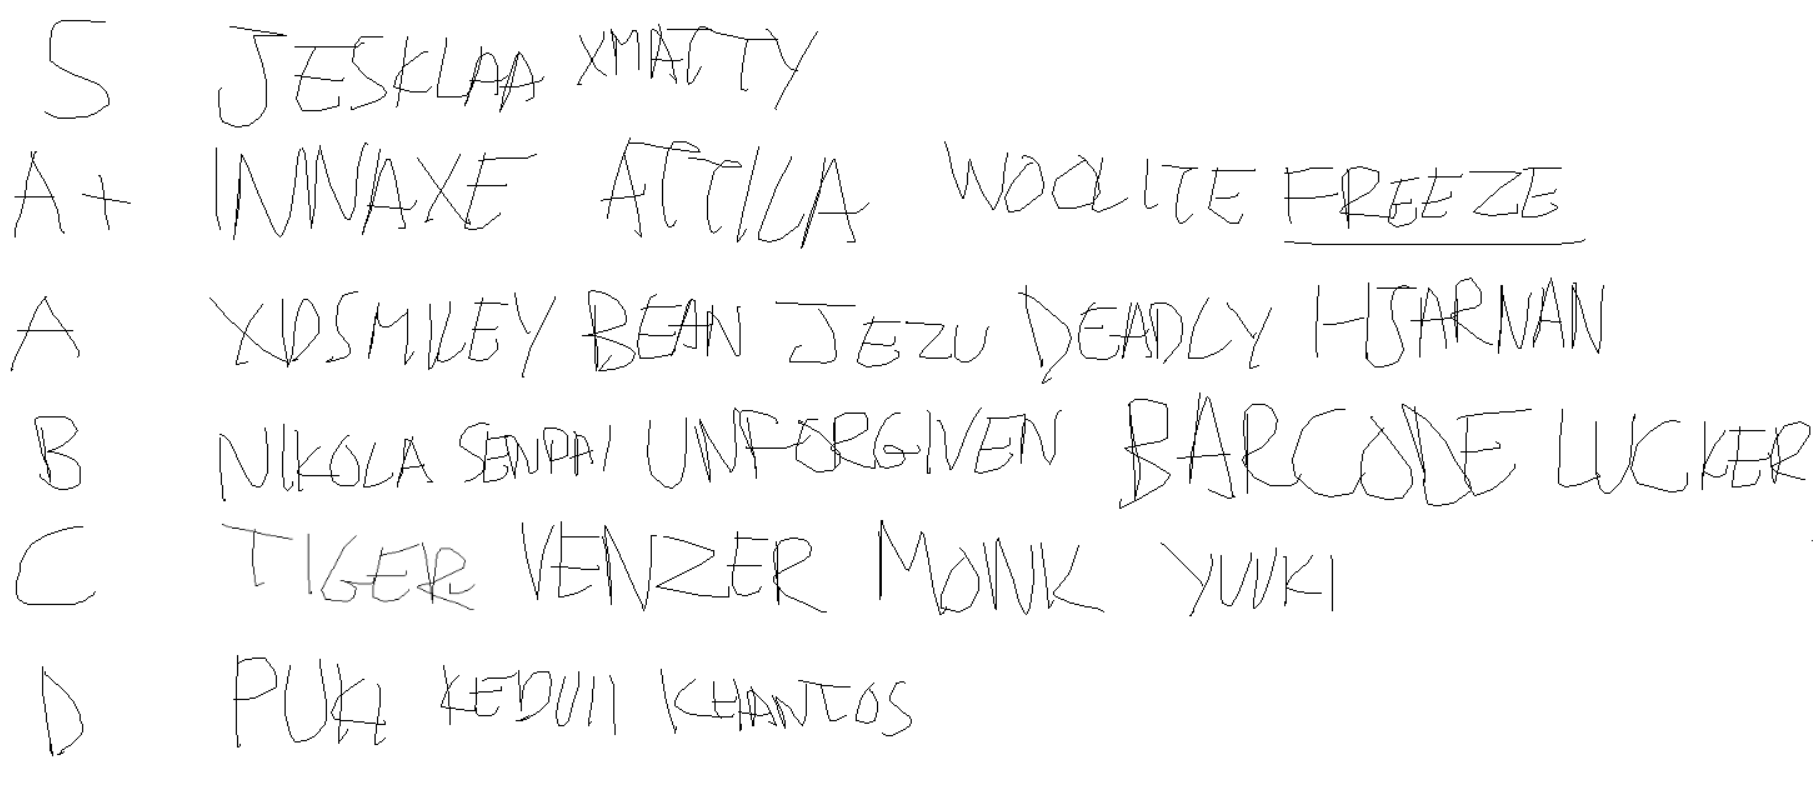 S JESKLAA XMATTY
A+ INNAXE ATTILA WOOLITE FREEZE
A XDSMILEY BEAN JEZU DEADLY HJARNAN
B NIKOLA SENPAI UNFORGIVEN BARCODE LUCKER
C TIGER VENZER MONK YUUKI
D PUKI KEDUII KHANTOS